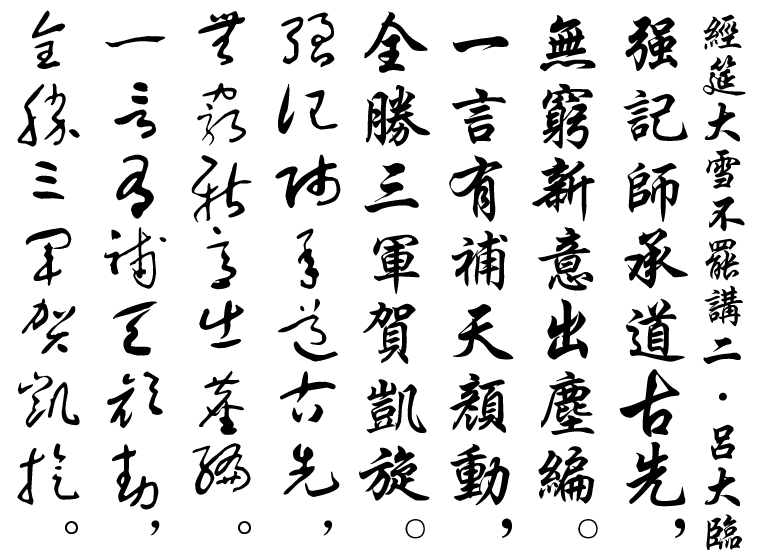 經筵大雪不罷講二·呂大臨
强記師承道古先，
無窮新意出塵編。
一言有補天顏動，
全勝三軍賀凱旋。
强記師承道古先，
無窮新意出塵編。
一言有補天顏動，
全勝三軍賀凱旋。